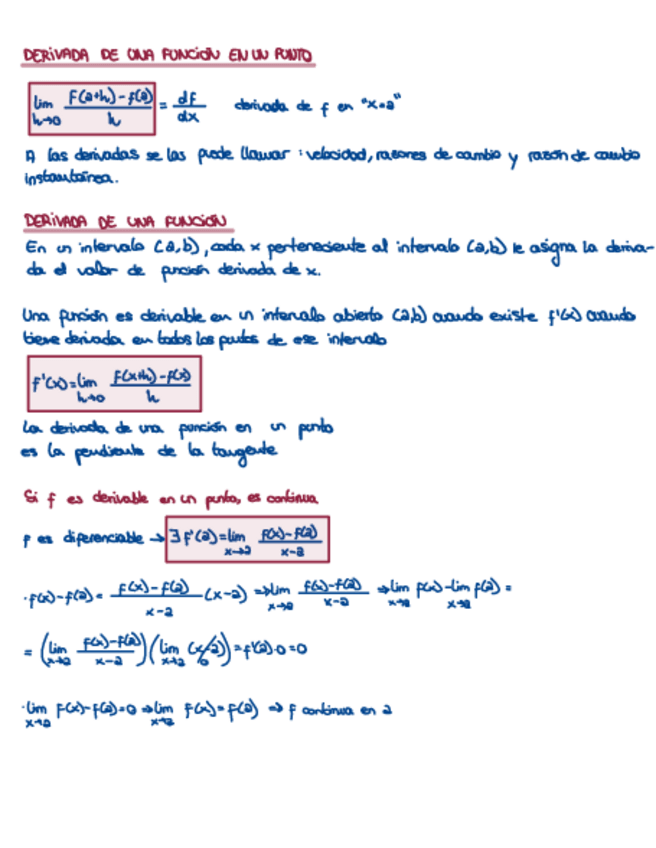 DERIVADA DE UNA FUNCIÓN EN UN PUNTO
lim h→0 f(a+h)-f(a) / h = df / dx derivada de f en "x=a"
A las derivadas se las puede llamar: velocidad, razones de cambio y razón de cambio
instantánea.
DERIVADA DE UNA FUNCIÓN
En un intervalo (a,b), cada x perteneciente al intervalo (a,b) le asigna la deriva-
da el valor de función derivada de x.
Una función es derivable en un intervalo abierto (a,b) cuando existe f'(x) cuando
tiene derivada en todos los puntos de ese intervalo
f'(x)=lim h→0 f(x+h)-f(x) / h
La derivada de una función en un punto
es la pendiente de la tangente
Si f es derivable en un punto, es continua
f es diferenciable → ∃ f'(a)=lim x→a f(x)-f(a) / x-a
·f(x)-f(a)= f(x)-f(a) / x-a (x-a) ⇒ lim x→a f(x)-f(a) / x-a ⇒ lim x→a f(x)-lim x→a f(a) =
= (lim x→a f(x)-f(a) / x-a)(lim x→a (x-a) 0)=f'(a)·0=0
·lim x→a f(x)-f(a)=0 ⇒ lim x→a f(x)=f(a) ⇒ f continua en a